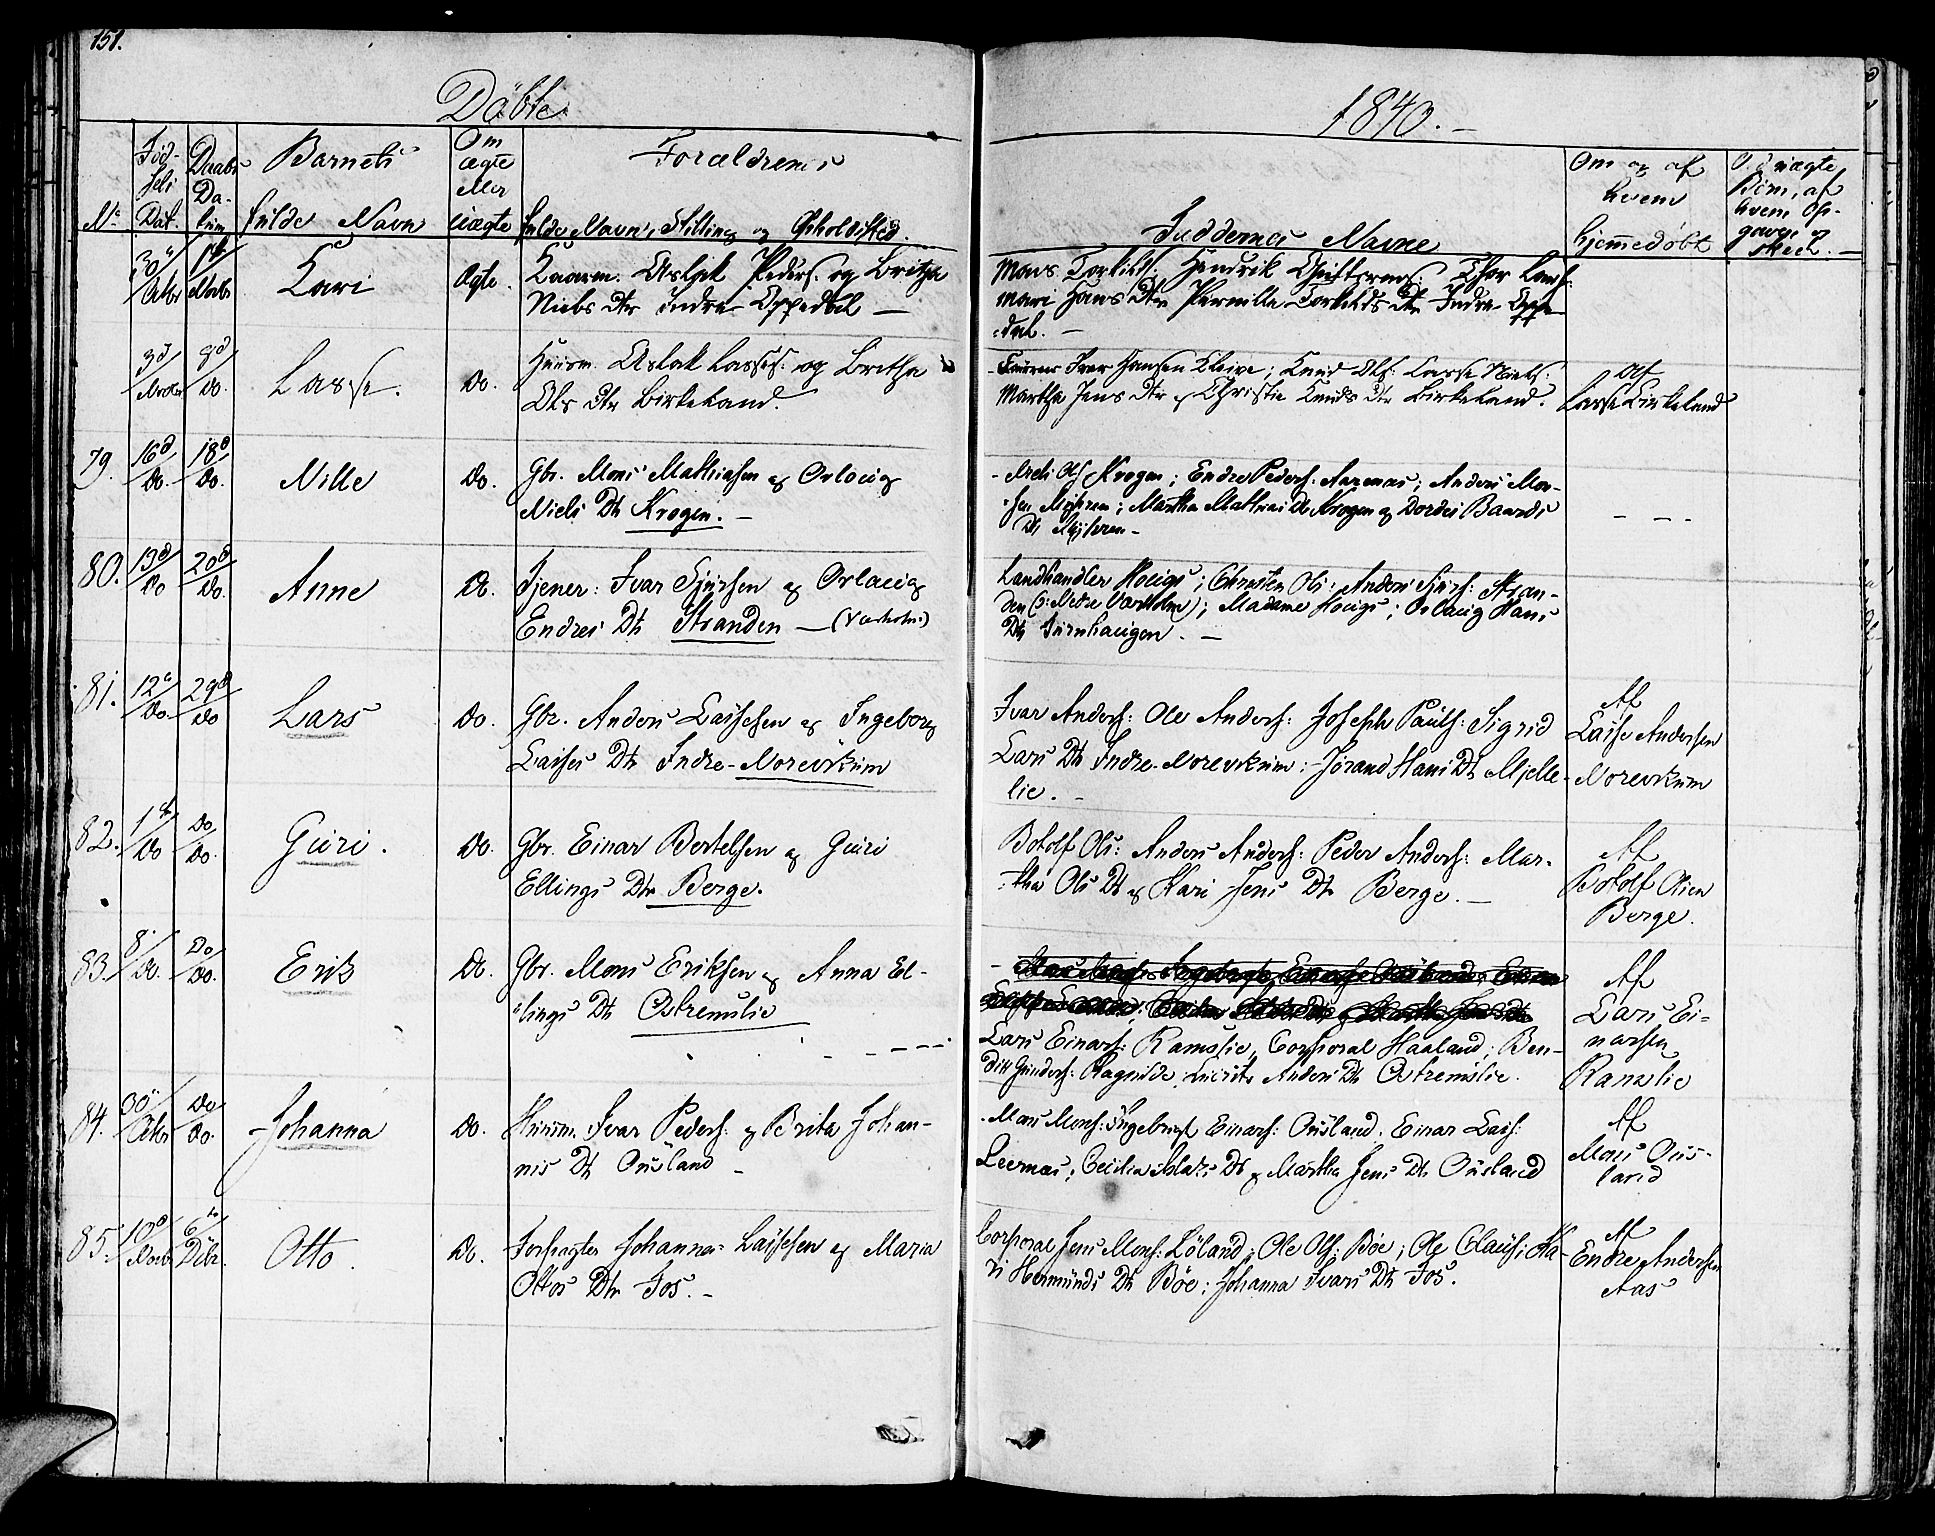 151.
Döbte
1840.-
Nº
Föd-
sels
Dat.
Daabs
Da-
tum
Barnets
fulde Navn
Om
ægte
eller
uægte
Forældrenes
fulde Navn, Stilling og Opholdsted.
Faddernes Navne
Om og af
hvem
hjemmedøbt
uægte
Børn, af
hvem
Kari
Ægte.
Peders. og Britha
Niels Dtr Indre Oppedal —
Mons Torkilds. Hendrik
Mari Hans Dtr Pernille Torkilds Dtr Indre Oppe-
:dal. —
3d/Novbr 8d/Do.
Lasse.
Do.
Huusm. Aslak Lasses. og Britha
Ols Dtr Birkeland.
Iver Hansen Kleive; Knud Ols: Lasse Niels:
Martha Jens Dtr og Christie Knuds Dtr Birkeland.
Af
Lasse Birkeland
79. 16d/Do. 18d/Do.
Nille
Do.
Gbr. Mons Mathiasen og Orlaug
Niels Dtr Krogen. —
Ols Krogen; Endre Peders. Aarenæs; Anders Mon-
:sen Myhren; Martha Mathias Dtr Krogen og Dordei Baards
Dtr Myhren -
80. 13d/Do 20d/Do.
Anne
Do.
Tjener: Ivar Sjursen og Orlaug
Endres Dtr Stranden — (Varholm)
Landhandler Houge; Christen Ols: Anders Sjurs: Stran-
den (: Nedre Varholm); Madame Houge; Orlaug Hans
Dtr Furuhaugen. —
81. 12e/Do. 29d/Do
Lars
Do.
Gbr. Anders Lassesen og Ingeborg
Lasses Dtr Indre-Norevikum
Ivar Anders: Ole Anders: Joseph Pauls: Sigrid
Lars Dtr Indre-Norevikum: Jorand Hans Dtr Mjelle-
lie. -
Af
Lasse Andersen
Norevikum
82. 1ste/Do Do/Do.
Guri.
Do.
Gbr. Einar Bertelsen og Guri
Ellings Dtr Berge.
Botolf Ols: Anders Anders: Peder Anders: Mar-
:tha Ols Dtr og Kari Jens Dtr Berge. —
Af
Botolf Olsen
Berge.
83. 8./Do. Do/Do.
Erik
Do.
Gbr. Mons Eriksen og Anna El-
:lings Dtr Østremslie
Lars Einars: Ramslie, Corporal Haaland; Ben-
dik Gunders: Ragnilde Anders Dtr Østremslie.
Af
Lars Ei-
narsen
Ramslie
84. 30/Octbr Do/Do.
Johanna
Do.
Huusm. Ivar Peders: og Brita Johan-
nis Dtr Ousland -
- Mons Mons: Ingebrigt Einars: Ousland. Einar Lass:
Leernæs; Cecilia Mats Dtr og Martha Jens Dtr Ousland
Af
Mons Ous-
land
85. 10d/Novbr 6te/Decbr.
Otto.
Do.
Forpagter Johannes Lassesen og Maria
Ottos Dtr Fos. -
Corporal Jens Mons: Löland; Ole Ols: Bøe; Ole Claus: Ka-
ri Hermunds Dtr Bøe; Johanna Ivars Dtr Fos.
Af
Endre Andersen
Aas